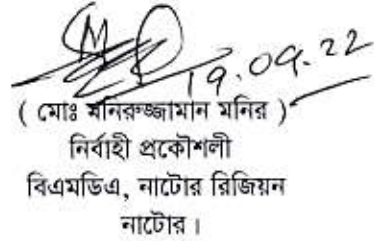 19.09.22
( মোঃ মনিরুজ্জামান মনির )
নির্বাহী প্রকৌশলী
বিএমডিএ, নাটোর রিজিয়ন
নাটোর।